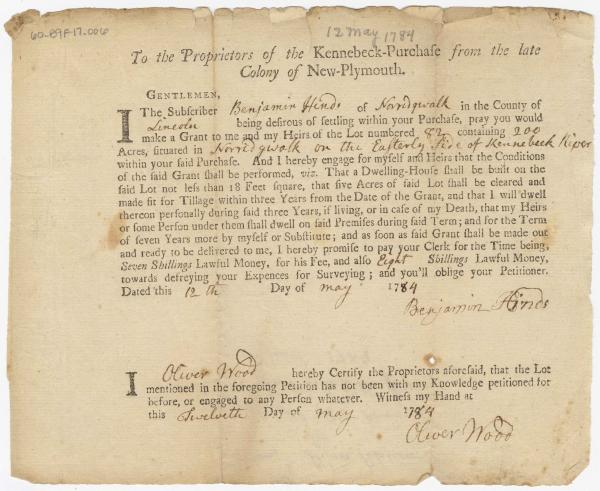 60-89F-17.006
12 May 1784
To the Proprietors of the Kennebeck-Purchaſe from the late
Colony of New-Plymouth.
GENTLEMEN,
I The Subſcriber Benjamin Hinds of Norridgwalk in the County of
Lincoln being deſirous of ſettling within your Purchaſe, pray you would
make a Grant to me and my Heirs of the Lot numbered 82 containing 200
Acres, ſituated in Norridgwalk on the Easterly Side of Kennebeck River
within your ſaid Purchaſe. And I hereby engage for myſelf and Heirs that the Conditions
of the ſaid Grant ſhall be performed, viz. That a Dwelling-Houſe ſhall be built on the
ſaid Lot not leſs than 18 Feet ſquare, that five Acres of ſaid Lot ſhall be cleared and
made fit for Tillage within three Years from the Date of the Grant, and that I will dwell
thereon perſonally during ſaid three Years, if living, or in caſe of my Death, that my Heirs
or ſome Perſon under them ſhall dwell on ſaid Premiſes during ſaid Term; and for the Term
of ſeven Years more by myſelf or Subſtitute; and as ſoon as ſaid Grant ſhall be made out
and ready to be delivered to me, I hereby promiſe to pay your Clerk for the Time being,
Seven Shillings Lawful Money, for his Fee, and alſo Eight Shillings Lawful Money,
towards defreying your Expences for Surveying; and you'll oblige your Petitioner.
Dated this 12th Day of may 1784
Benjamin Hinds
I Oliver Wood hereby Certify the Proprietors aforeſaid, that the Lot
mentioned in the foregoing Petition has not been with my Knowledge petitioned for
before, or engaged to any Perſon whatever. Witneſs my Hand at
this Twelveth Day of may 1784
Oliver Wood